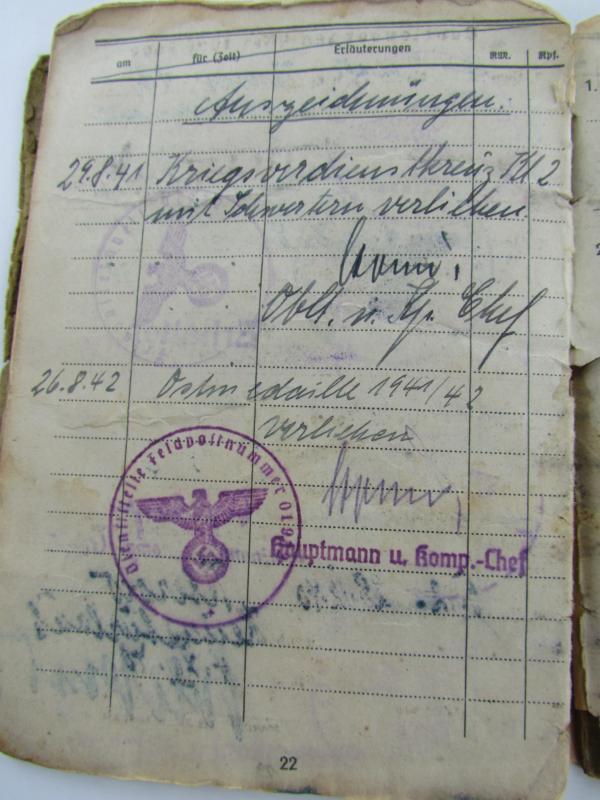 am für (Zeit) Erläuterungen RM. Rpf.
Auszeichnungen.
29.8.41 Kriegsverdienstkreuz Kl 2
mit Schwertern verliehen.
Oblt. u. Kp. Chef
26.8.42 Ostmedaille 1941/42
verliehen
Dienststelle Feldpostnummer 019
Hauptmann u. Komp.-Chef
22
1.